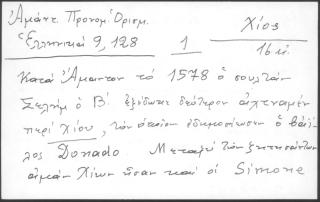 Ἀμάντ. Προνομ. Ὁρισμ.
Ἑλληνικά 9, 128
1
Χίος
16 αἰ.
Κατά Ἄμαντον τό 1578 ὁ σουλτάν
Σελήμ ὁ Β΄ ἐξέδωκε δεύτερον ἀχτιναμέν
περί Χίου, τόν ὁποῖον ἐδημοσίευσεν ὁ βαΐ
λος Donado Μεταξύ τῶν ζητησάντων
Χίων ἦσαν καί οἱ Simone